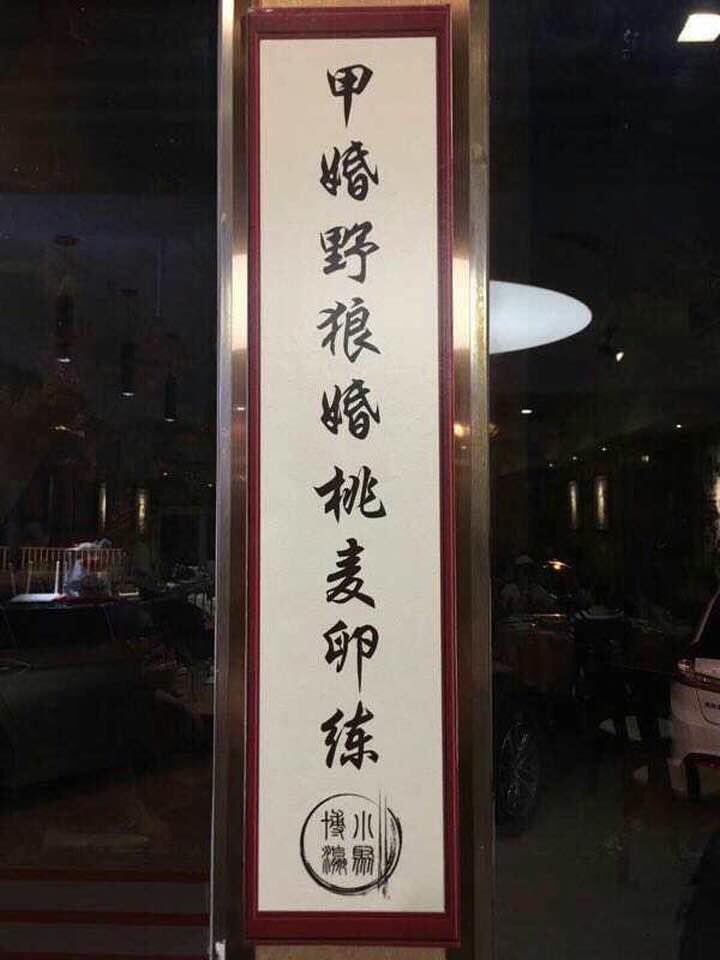 甲婚野狼婚桃麦卵练
小駒
博瀛